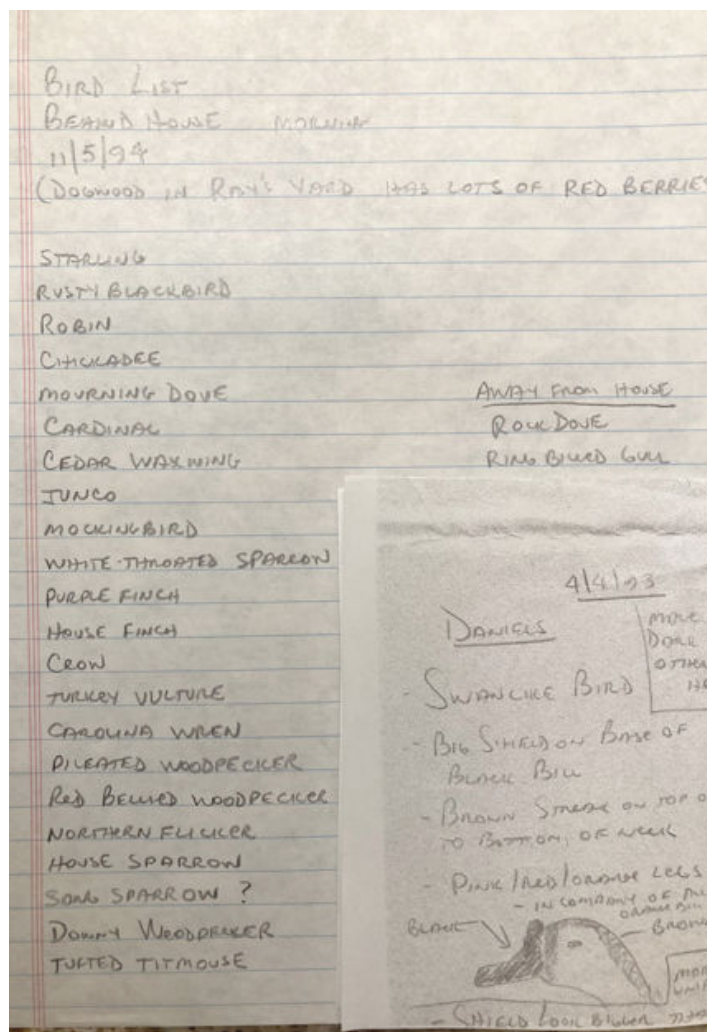 BIRD LIST
BEHIND HOUSE MORNING
11/5/94
(DOGWOOD IN RAY'S YARD HAS LOTS OF RED BERRIES
STARLING
RUSTY BLACKBIRD
ROBIN
CHICKADEE
MOURNING DOVE
CARDINAL
CEDAR WAXWING
JUNCO
MOCKINGBIRD
WHITE-THROATED SPARROW
PURPLE FINCH
HOUSE FINCH
CROW
TURKEY VULTURE
CAROLINA WREN
PILEATED WOODPECKER
RED BELLIED WOODPECKER
NORTHERN FLICKER
HOUSE SPARROW
SONG SPARROW ?
DOWNY WOODPECKER
TUFTED TITMOUSE
AWAY FROM HOUSE
ROCK DOVE
RING BILLED GULL
4/4/93
DANIELS
- SWANLIKE BIRD
- BIG SHIELD ON BASE OF
BLACK BILL
- BROWN STREAK ON TOP
TO BOTTOM, OF NECK
- PINK/RED/ORANGE LEGS
- IN COMPANY OF
ORANGE BILL
BLACK
BROWN
- SHIELD LOOK BIGGER